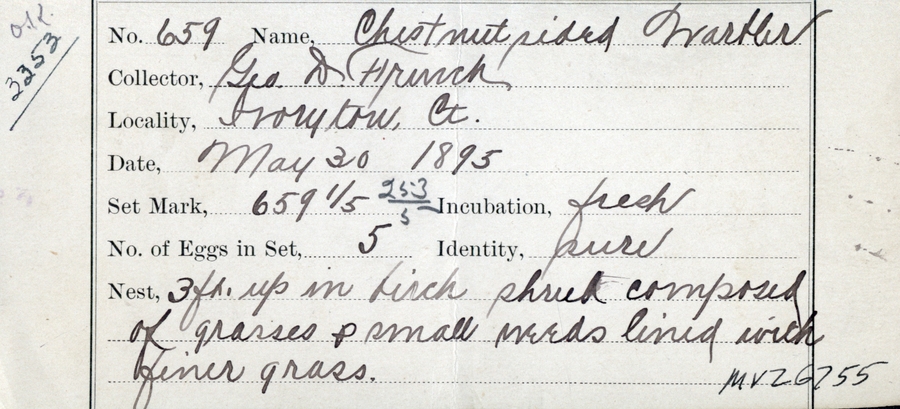 O.K.
3353
No. 659 Name, Chestnut sided Warbler
Collector, Geo. D. French
Locality, Ivoryton, Ct.
Date, May 30 1895
Set Mark, 659 1/5 253/5 Incubation, fresh
No. of Eggs in Set, 5 Identity, sure
Nest, 3 ft. up in birch shrub composed
of grasses & small weeds lined with
finer grass.